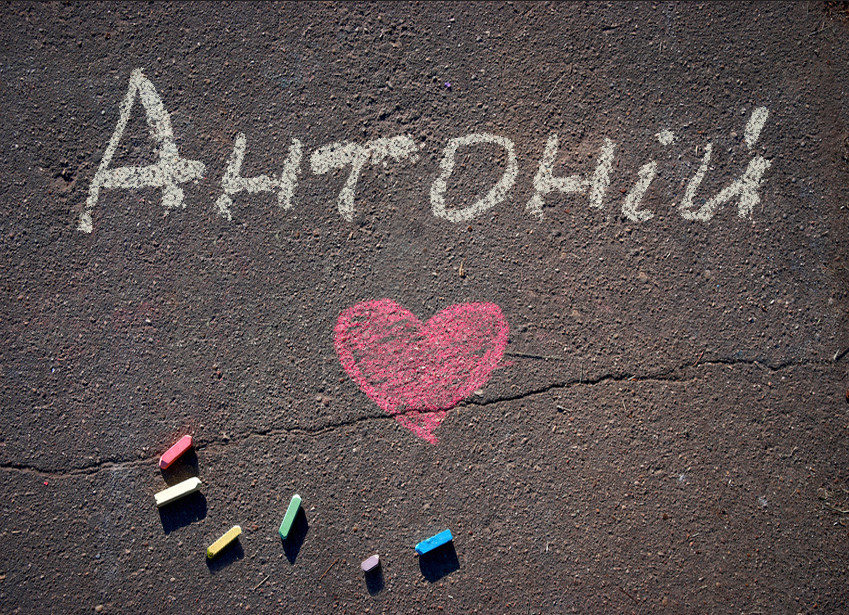 Антоній